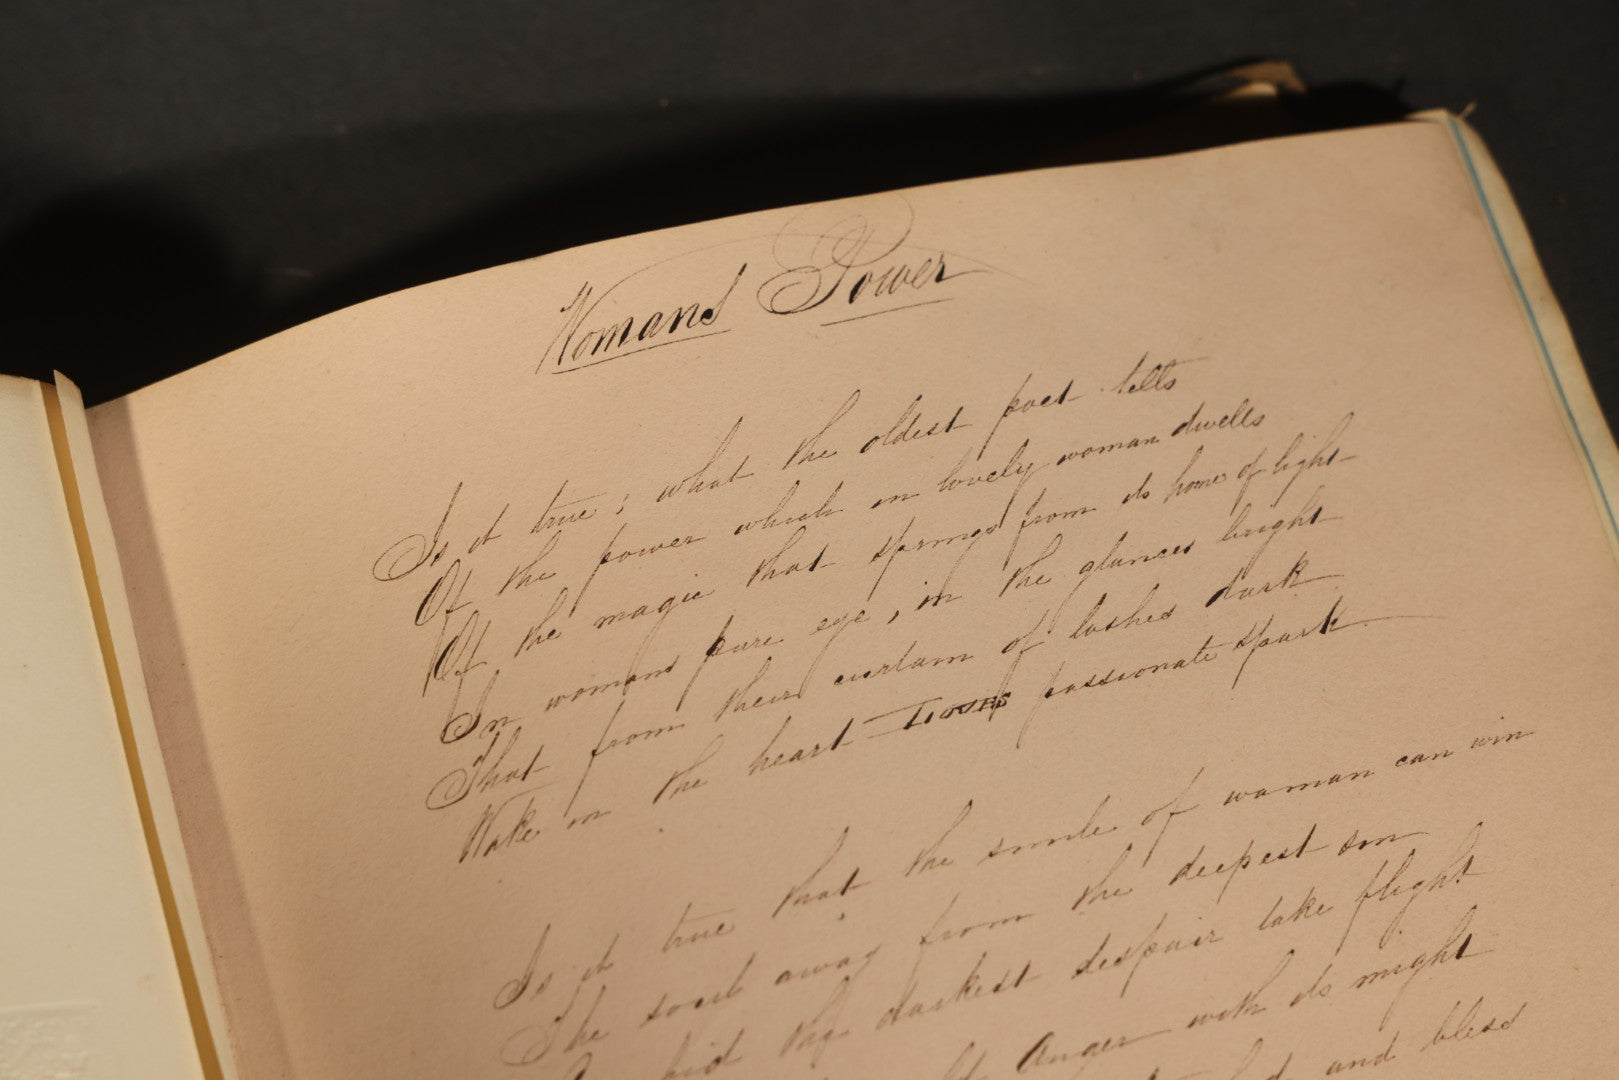 Womans Power
Is it true; what the oldest poet tells
Of the power which in lovely woman dwells
Of the magic that springs from its home of light
In womans pure eye, in the glances bright
That from their curtain of lashes dark
Wake in the heart passionate spark
Is it true that the smile of woman can win
The soul away from the deepest sin
bid the darkest despair take flight
Anger with its might
and bless